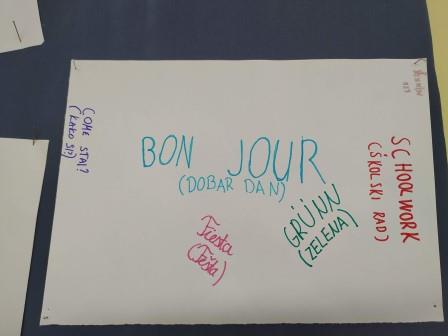 COME STAI?
(KAKO SI?)
BON JOUR
(DOBAR DAN)
Fiesta
(Fešta)
GRÜNN
(ZELENA)
SCHOOLWORK
(ŠKOLSKI RAD)